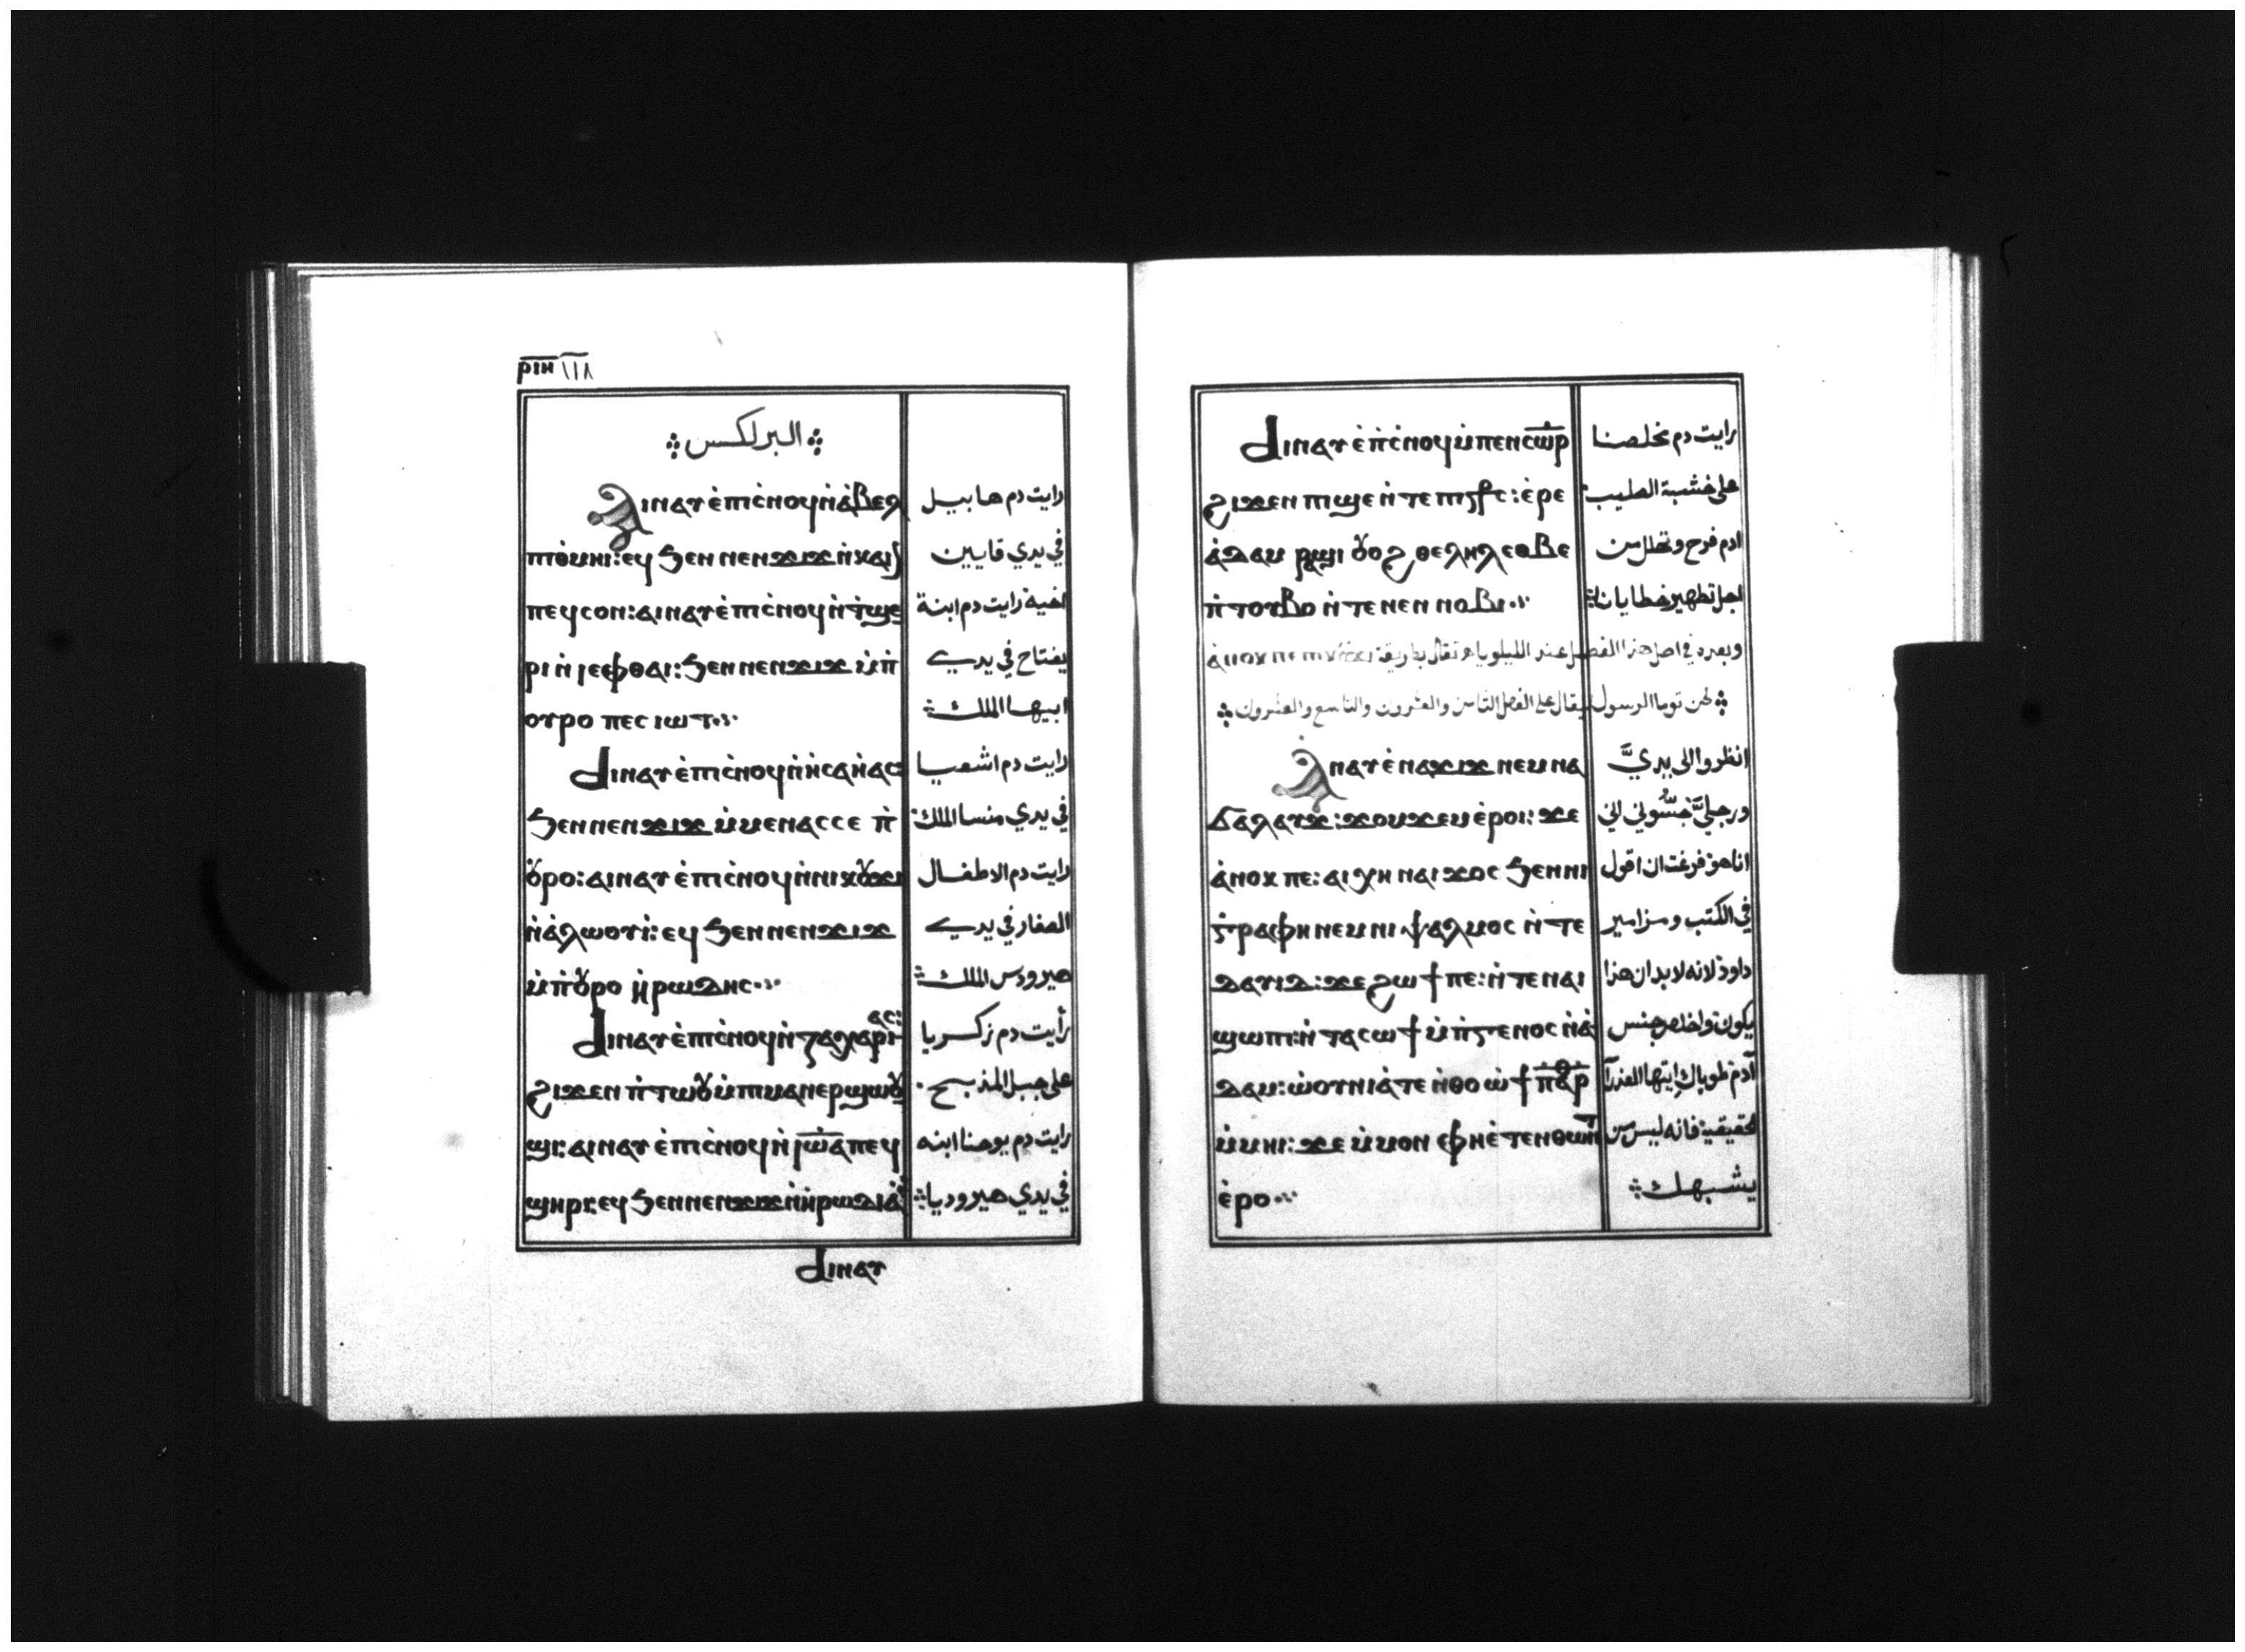 ⲣⲓⲏ ١١٨
البرلكسس
ⲁⲓⲛⲁⲩ ⲉ̇ⲡⲓⲥ̇ⲛⲟϥ ⲛ̇ⲁ̇ⲃⲉⲗ رايت دم هابيل
ⲡⲓⲑ̇ⲙⲏⲓ: ⲉϥ ϧⲉⲛ ⲛⲉⲛϫⲓϫ ⲛ̇ⲕⲁⲓ في يدي قايين
ⲡⲉϥⲥⲟⲛ: ⲁⲓⲛⲁⲩ ⲉ̇ⲡⲓⲥ̇ⲛⲟϥ ⲛ̇ϯϣⲉ اخيه رايت دم ابنة
ⲣⲓ ⲛ̇ⲓⲉⲫⲑⲁⲓ: ϧⲉⲛ ⲛⲉⲛϫⲓϫ ⲙ̇ⲡ̇ يفتاح في يدي
ⲟⲩⲣⲟ ⲡⲉⲥ ⲓⲱⲧ ابيها الملك
ⲁⲓⲛⲁⲩ ⲉ̇ⲡⲓⲥ̇ⲛⲟϥ ⲛ̇ⲏⲥⲁⲏ̇ⲁⲥ رايت دم اشعيا
ϧⲉⲛ ⲛⲉⲛϫⲓϫ ⲙ̇ⲙⲉⲛⲁⲥⲥⲉ ⲡ̇ في يدي منسا الملك
ⲟⲩⲣⲟ: ⲁⲓⲛⲁⲩ ⲉ̇ⲡⲓⲥ̇ⲛⲟϥ ⲛ̇ⲛⲓⲕⲟⲩϫⲓ رايت دم الاطفال
ⲛ̇ⲁ̇ⲗⲱⲟⲩⲓ̇: ⲉϥ ϧⲉⲛ ⲛⲉⲛϫⲓϫ الصغار في يدي
ⲙ̇ⲡ̇ⲟⲩⲣⲟ ⲏ̇ⲣⲱⲇⲏⲥ هيرودس الملك
ⲁⲓⲛⲁⲩ ⲉ̇ⲡⲓⲥ̇ⲛⲟϥ ⲛ̇ⲍⲁⲭⲁⲣⲓⲁⲥ: رأيت دم زكريا
ϩⲓϫⲉⲛ ⲡ̇ⲧⲱⲟⲩ ⲙ̇ⲡⲓⲙⲁⲛⲉⲣϣⲱⲟⲩ على جبل المذبح
ϣⲓ: ⲁⲓⲛⲁⲩ ⲉ̇ⲡⲓⲥ̇ⲛⲟϥ ⲛ̇ⲓⲱⲁ ⲡⲉϥ رايت دم يوحنا ابنه
ϣⲏⲣⲓ: ⲉϥ ϧⲉⲛ ⲛⲉⲛϫⲓϫ ⲛ̇ⲏ̇ⲣⲱⲇⲓⲁ̇ في يدي هيروديا
ⲁⲓⲛⲁⲩ
ⲁⲓⲛⲁⲩ ⲉ̇ⲡ̇ⲥ̇ⲛⲟϥ ⲙ̇ⲡⲉⲛⲥⲱⲣ رايت دم مخلصنا
ϩⲓϫⲉⲛ ⲡⲓϣⲉ ⲛ̇ⲧⲉ ⲡⲓⲥⳁⲥ: ⲉ̇ⲣⲉ على خشبة الصليب
ⲁ̇ⲇⲁⲙ ⲣⲁϣⲓ ⲟⲩⲟϩ ⲑⲉⲗⲏⲗ ⲉⲑⲃⲉ ادم فرح وتهلل من
ⲡ̇ⲧⲟⲩⲃⲟ ⲛ̇ⲧⲉ ⲛⲉⲛ ⲛⲟⲃⲓ اجل تطهير خطايانا
وبعده في اصل هذا الفصل عند الليلويا تقال بطريقة ⲁ̇ⲛⲟⲕ ⲡⲉ
لحن توما الرسول يقال على الفصل الثامن والعشرون والتاسع والعشرون
ⲁⲛⲁⲩ ⲉ̇ⲛⲁϫⲓϫ ⲛⲉⲙ ⲛⲁ انظروا الى يديَّ
ϭⲁⲗⲁⲩϫ: ϫⲟⲙϫⲉⲙ ⲉ̇ⲣⲟⲓ: ϫⲉ ورجليَّ جسّوني اني
ⲁ̇ⲛⲟⲕ ⲡⲉ: ⲁⲓⲭⲏ ⲛⲁⲓϫⲟⲥ ϧⲉⲛ ⲛⲓ انا هو فرغت ان اقول
ⲅ̇ⲣⲁⲫⲏ ⲛⲉⲙ ⲛⲓ ⲯⲁⲗⲙⲟⲥ ⲛ̇ⲧⲉ في الكتب ومزامير
ⲇⲁⲩⲓⲇ: ϫⲉ ϩⲱϯ ⲡⲉ: ⲛ̇ⲧⲉ ⲛⲁⲓ داود لانه لابد ان هذا
ϣⲱⲡⲓ: ⲛ̇ⲧⲁⲥⲱϯ ⲙ̇ⲡ̇ⲅⲉⲛⲟⲥ ⲛ̇ⲁ̇ يكون واخلص جنس
ⲇⲁⲙ: ⲱ̇ⲟⲩⲛⲓⲁ̇ⲧⲉ ⲛ̇ⲑⲟ ⲱ̇ ϯⲡⲁⲣⲑ آدم طوباكِ ايتها العذرآ
ⲙ̇ⲙⲏⲓ: ϫⲉ ⲙ̇ⲙⲟⲛ ⲫⲏⲉ̇ⲧⲉⲛⲑⲱⲛⲧ بحقيقية فانه ليس من
ⲉ̇ⲣⲟ يشبهك